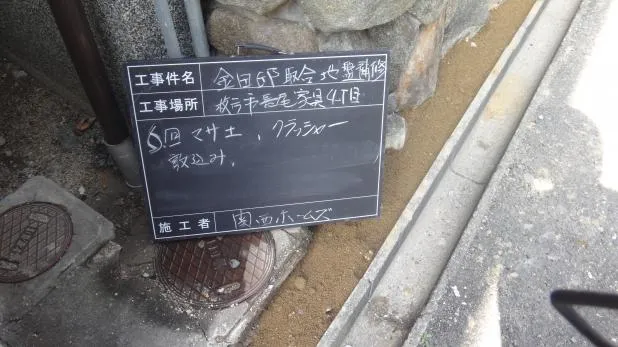 工事件名 金田邸取合地盤補修
工事場所 枚方市長尾家具4丁目
マサ土、クラッシャー
敷込み。
施工者 関西ホームズ